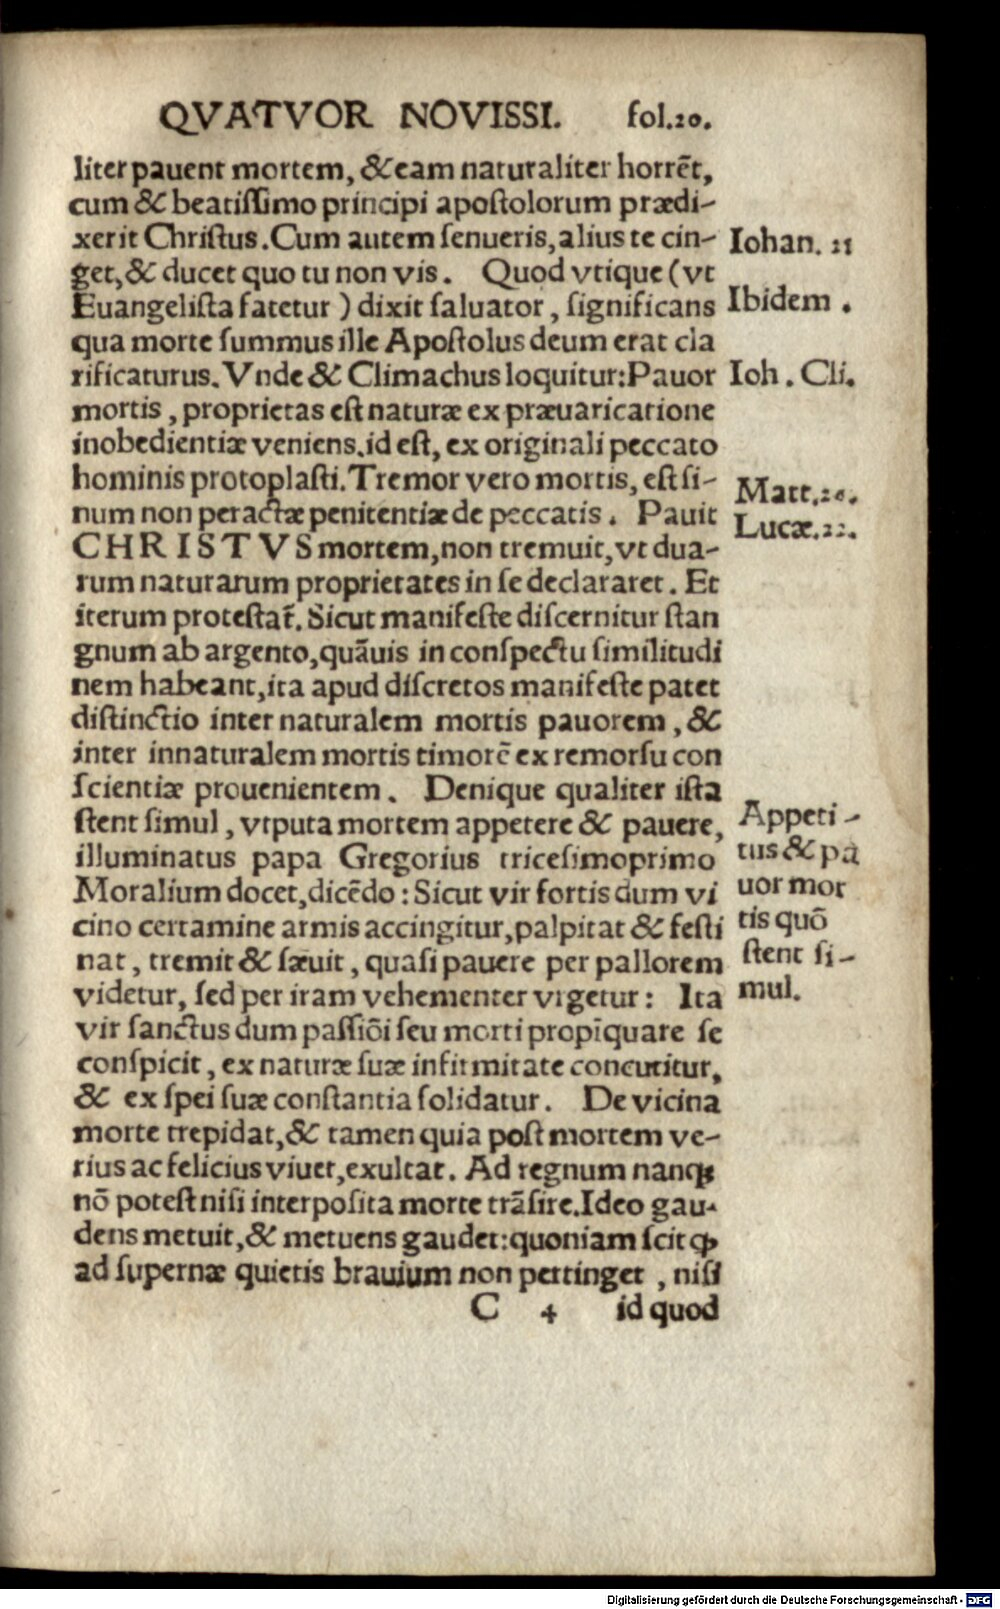 QVATVOR NOVISSI. fol.20.
liter pauent mortem, & eam naturaliter horrēt,
cum & beatissimo principi apostolorum prædi-
xerit Christus. Cum autem senueris, alius te cin-
get, & ducet quo tu non vis. Quod vtique (vt
Euangelista fatetur) dixit saluator, significans
qua morte summus ille Apostolus deum erat cla
rificaturus. Vnde & Climachus loquitur: Pauor
mortis, proprietas est naturæ ex præuaricatione
inobedientiæ veniens. id est, ex originali peccato
hominis protoplasti. Tremor vero mortis, est si-
num non peractæ penitentiæ de peccatis. Pauit
CHRISTVS mortem, non tremuit, vt dua-
rum naturarum proprietates in se declararet. Et
iterum protestaẗ. Sicut manifeste discernitur stan
gnum ab argento, quāuis in conspectu similitudi
nem habeant, ita apud discretos manifeste patet
distinctio inter naturalem mortis pauorem, &
inter innaturalem mortis timorē ex remorsu con
scientiæ prouenientem. Denique qualiter ista
stent simul, vtputa mortem appetere & pauere,
illuminatus papa Gregorius tricesimoprimo
Moralium docet, dicēdo: Sicut vir fortis dum vi
cino certamine armis accingitur, palpitat & festi
nat, tremit & sæuit, quasi pauere per pallorem
videtur, sed per iram vehementer vrgetur: Ita
vir sanctus dum passiōi seu morti propīquare se
conspicit, ex naturæ suæ infirmitate concutitur,
& ex spei suæ constantia solidatur. De vicina
morte trepidat, & tamen quia post mortem ve-
rius ac felicius viuet, exultat. Ad regnum nanqꝫ
nō potest nisi interposita morte trāsire. Ideo gau-
dens metuit, & metuens gaudet: quoniam scit ꝙ
ad supernæ quietis brauium non pertinget, nisi
C 4 id quod
Iohan. 21
Ibidem.
Ioh. Cli.
Matt. 26.
Lucæ. 22.
Appeti-
tus & pa
uor mor
tis quō
stent si-
mul.
Digitalisierung gefördert durch die Deutsche Forschungsgemeinschaft - DFG